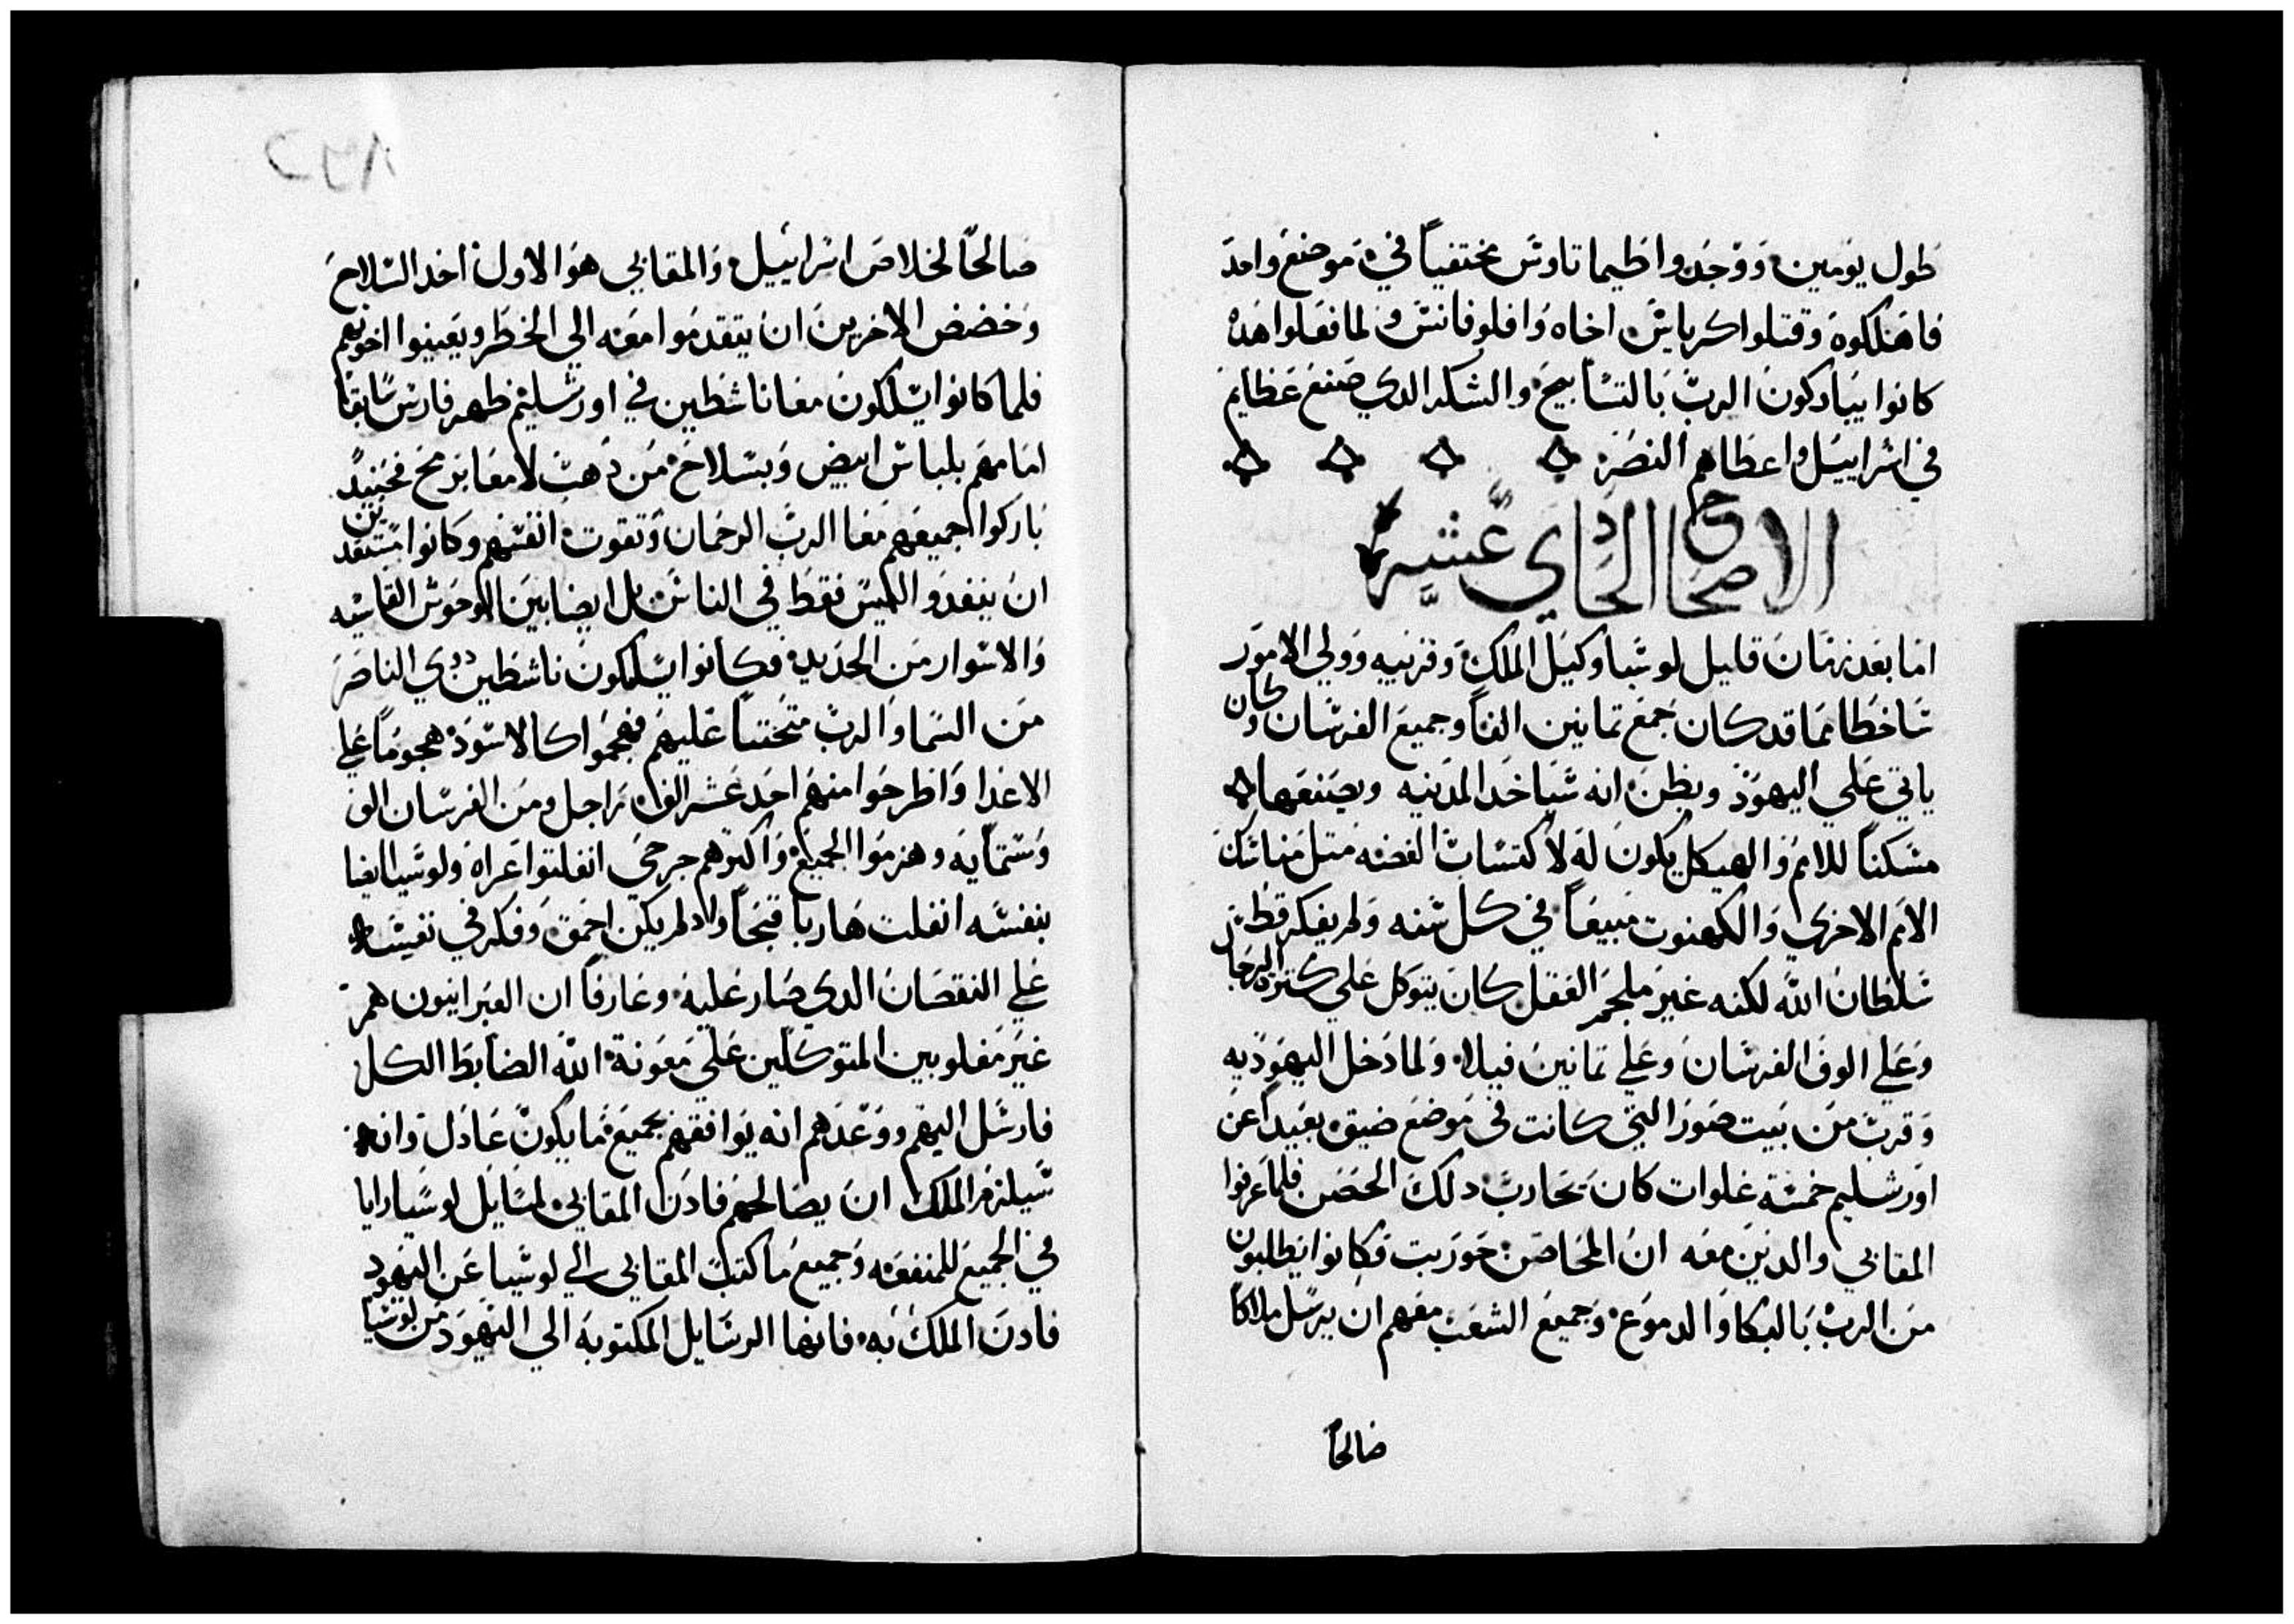 طول يومين ووجدوا طيماتاوس مختفياً في موضع واحد
فاهلكوه وقتلوا كرباس اخاه وافلوفانس ولما فعلوا هده
كانوا يباركون الرب بالتسابيح والشكر الدي صنع عظايم
في اسراييل واعطاهم النصره
الاصحاح الحادي عشر
اما بعد زمان قليل لوسيا وكيل الملك وقريبه وولي الامور
ساخطا مما قد كان جمع تمانين الفاً وجميع الفرسان وكان
ياتي علي اليهود ويظن انه سياخد المدينه ويصنعها
مسكناً للامم والهيكل يكون له لاكتساب الفضه متل مناسك
الامم الاخري والكهنوت مبيعاً في كل سنه ولم يفكر قط في
سلطان الله لكنه غير ملجم العقل كان يتوكل علي كترة الرجال
وعلي الوف الفرسان وعلي تمانين فيلا ولما دخل اليهوديه
وقرب من بيت صور التي كانت في موضع ضيق بعيداً عن
اورشليم خمسة غلوات كان يحارب دلك الحصن فلما عرفوا
المقابي والدين معه ان المحاصن حوربت فكانوا يطلبون
من الرب بالبكا والدموع وجميع الشعب معهم ان يرسل ملاكاً
صالحاً
٨٢٥
صالحاً لخلاص اسراييل والمقابي هو الاول اخد السلاح
وخضض الاخرين ان يتقدموا معه الي الخطر ويعينوا اخوتهم
فلما كانوا يسلكون معا ناشطين في اورشليم ظهر فارس سابقاً
امامهم بلباس ابيض وبسلاح من دهب لامعا برمح فحينيد
باركوا جميعهم معا الرب الرحمان وتقوت انفسهم وكانوا مستعدين
ان ينفدوا ليس فقط في الناس بل ايضا بين الوحوش القاسيه
والاسوار من الحديد فكانوا يسلكون ناشطين دوي الناصر
من السما والرب متحنناً عليهم فهجموا كالاسود هجوماً علي
الاعدا واطرحوا منهم احد عشر الف راجل ومن الفرسان الف
وستمايه وهزموا الجميع واكترهم جرحي انفلتوا عراه ولوسيا ايضا
بنفسه انفلت هاربا قبحاً واد لم يكن احمق وفكر في نفسه
علي النقصان الدي صار عليه وعارفاً ان العبرانيون هم
غير مغلوبين المتوكلين علي معونة الله الضابط الكل
فارسل اليهم ووعدهم انه يوافقهم بجميع ما يكون عادل وانه
سيلزم الملك ان يصالحهم فادن المقابي لمسايل لوسيا رايا
في الجميع للمنفعه وجميع ما كتب المقابي الي لوسيا عن اليهود
فادن الملك به فانها الرسايل المكتوبه الي اليهود من لوسيا